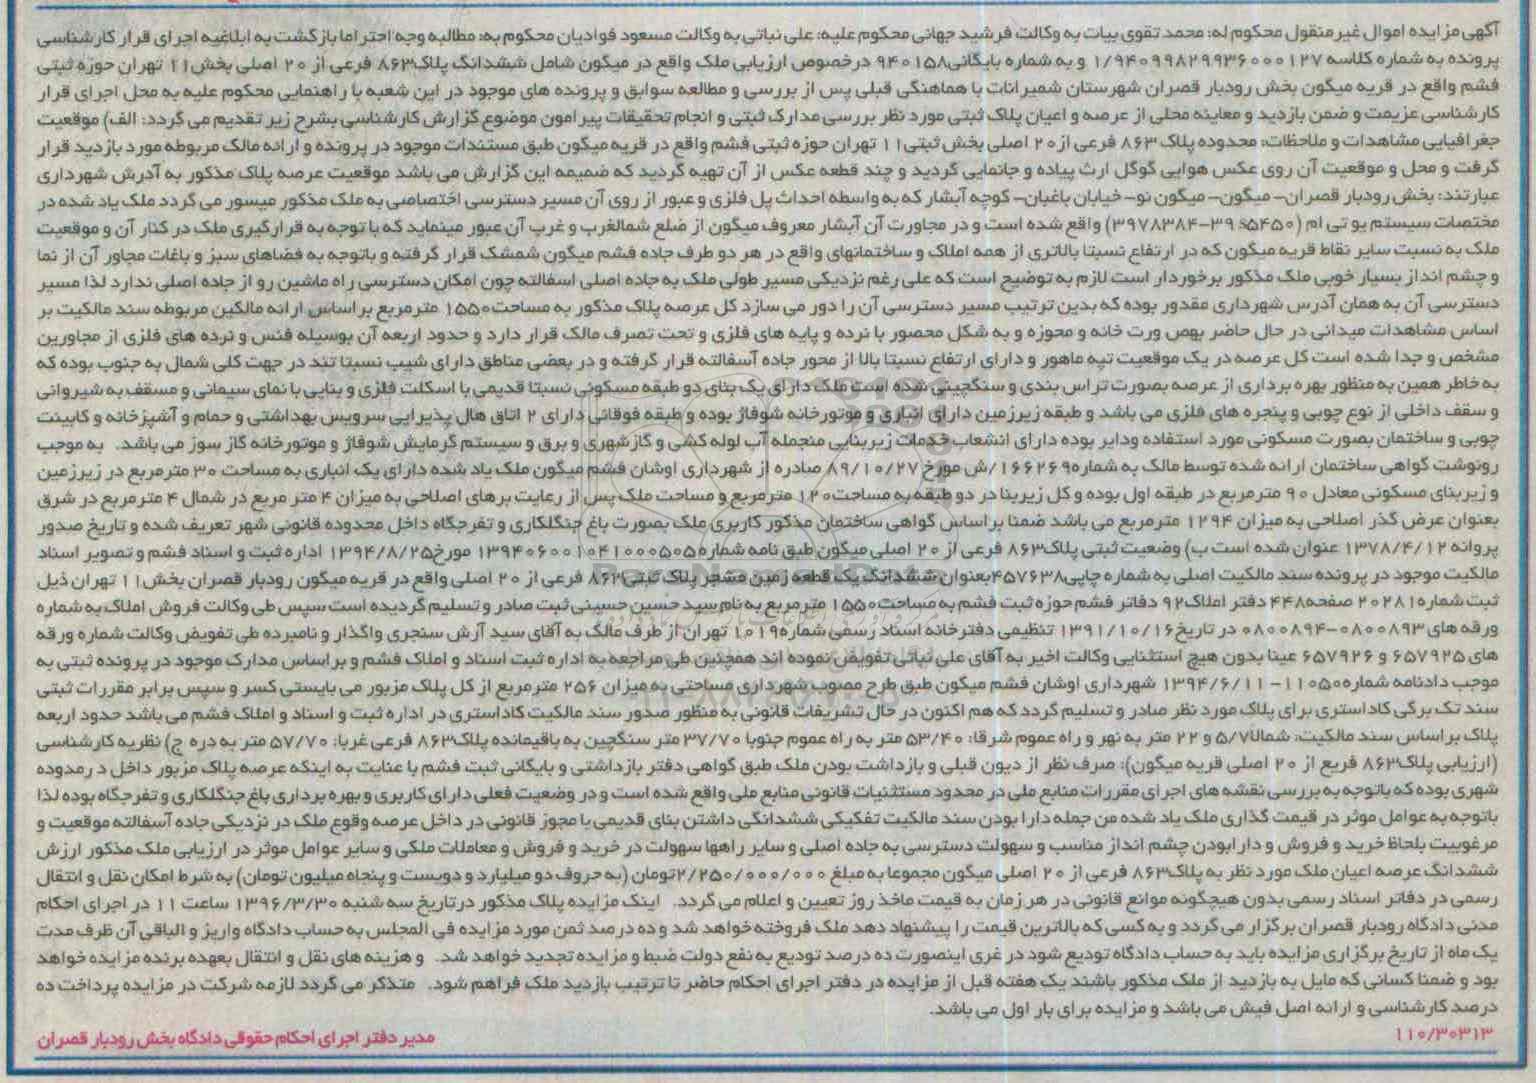 آگهی مزایده اموال غیرمنقول محکوم له: محمد تقوی بیات به وکالت فرشید جهانی محکوم علیه: علی نباتی به وکالت مسعود فوادیان محکوم به: مطالبه وجه احتراما بازگشت به ابلاغیه اجرای قرار کارشناسی
پرونده به شماره کلاسه ۱/۹۴۰۹۹۸۲۹۹۳۶۰۰۰۱۲۷ و به شماره بایگانی۹۴۰۱۵۸ درخصوص ارزیابی ملک واقع در میگون شامل ششدانگ پلاک۸۶۳ فرعی از ۲۰ اصلی بخش۱۱ تهران حوزه ثبتی
فشم واقع در قریه میگون بخش رودبار قصران شهرستان شمیرانات با هماهنگی قبلی پس از بررسی و مطالعه سوابق و پرونده های موجود در این شعبه با راهنمایی محکوم علیه به محل اجرای قرار
کارشناسی عزیمت و ضمن بازدید و معاینه محلی از عرصه و اعیان پلاک ثبتی مورد نظر بررسی مدارک ثبتی و انجام تحقیقات پیرامون موضوع گزارش کارشناسی بشرح زیر تقدیم می گردد: الف) موقعیت
جغرافیایی مشاهدات و ملاحظات: محدوده پلاک ۸۶۳ فرعی از۲۰ اصلی بخش ثبتی۱۱ تهران حوزه ثبتی فشم واقع در قریه میگون طبق مستندات موجود در پرونده و ارائه مالک مربوطه مورد بازدید قرار
گرفت و محل و موقعیت آن روی عکس هوایی گوگل ارث پیاده و جانمایی گردید و چند قطعه عکس از آن تهیه گردید که ضمیمه این گزارش می باشد موقعیت عرصه پلاک مذکور به آدرش شهرداری
عبارتند: بخش رودبار قصران- میگون- میگون نو- خیابان باغبان- کوچه آبشار که به واسطه احداث پل فلزی و عبور از روی آن مسیر دسترسی اختصاصی به ملک مذکور میسور می گردد ملک یاد شده در
مختصات سیستم یو تی ام (۳۹۷۸۳۸۴-) واقع شده است و در مجاورت آن آبشار معروف میگون از ضلع شمالغرب و غرب آن عبور مینماید که با توجه به قرارگیری ملک در کنار آن و موقعیت
ملک به نسبت سایر نقاط قریه میگون که در ارتفاع نسبتا بالاتری از همه املاک و ساختمانهای واقع در هر دو طرف جاده فشم میگون شمشک قرار گرفته و باتوجه به فضاهای سبز و باغات مجاور آن از نما
و چشم انداز بسیار خوبی ملک مذکور برخوردار است لازم به توضیح است که علی رغم نزدیکی مسیر طولی ملک به جاده اصلی اسفالته چون امکان دسترسی راه ماشین رو از جاده اصلی ندارد لذا مسیر
دسترسی آن به همان آدرس شهرداری مقدور بوده که بدین ترتیب مسیر دسترسی آن را دور می سازد کل عرصه پلاک مذکور به مساحت۱۵۵۰ مترمربع براساس ارائه مالکین مربوطه سند مالکیت بر
اساس مشاهدات میدانی در حال حاضر بهص ورت خانه و محوزه و به شکل محصور با نرده و پایه های فلزی و تحت تصرف مالک قرار دارد و حدود اربعه آن بوسیله فنس و نرده های فلزی از مجاورین
مشخص و جدا شده است کل عرصه در یک موقعیت تپه ماهور و دارای ارتفاع نسبتا بالا از محور جاده آسفالته قرار گرفته و در بعضی مناطق دارای شیب نسبتا تند در جهت کلی شمال به جنوب بوده که
به خاطر همین به منظور بهره برداری از عرصه بصورت تراس بندی و سنگچینی شده است ملک دارای یک بنای دو طبقه مسکونی نسبتا قدیمی با اسکلت فلزی و بنایی با نمای سیمانی و مسقف به شیروانی
و سقف داخلی از نوع چوبی و پنجره های فلزی می باشد و طبقه زیرزمین دارای انباری و موتورخانه شوفاژ بوده و طبقه فوقانی دارای ۲ اتاق هال پذیرایی سرویس بهداشتی و حمام و آشپزخانه و کابینت
چوبی و ساختمان بصورت مسکونی مورد استفاده ودایر بوده دارای انشعاب خدمات زیربنایی منجمله آب لوله کشی و گاز شهری و برق و سیستم گرمایش شوفاژ و موتورخانه گاز سوز می باشد. به موجب
رونوشت گواهی ساختمان ارائه شده توسط مالک به شماره۱۶۶۲۶۹/ش مورخ ۸۹/۱۰/۲۷ صادره از شهرداری اوشان فشم میگون ملک یاد شده دارای یک انباری به مساحت ۳۰ مترمربع در زیرزمین
و زیربنای مسکونی معادل ۹۰ مترمربع در طبقه اول بوده و کل زیربنا در دو طبقه به مساحت۱۲۰ مترمربع و مساحت ملک پس از رعایت برهای اصلاحی به میزان ۴ متر مربع در شمال ۴ مترمربع در شرق
بعنوان عرض گذر اصلاحی به میزان ۱۲۹۴ مترمربع می باشد ضمنا براساس گواهی ساختمان مذکور کاربری ملک بصورت باغ جنگلکاری و تفرجگاه داخل محدوده قانونی شهر تعریف شده و تاریخ صدور
پروانه ۱۳۷۸/۴/۱۲ عنوان شده است ب) وضعیت ثبتی پلاک۸۶۳ فرعی از ۲۰ اصلی میگون طبق نامه شماره۱۳۹۴۰۶۰۰۱۰۴۱۰۰۰۵۰۵ مورخ۱۳۹۴/۸/۲۵ اداره ثبت و اسناد فشم و تصویر اسناد
مالکیت موجود در پرونده سند مالکیت اصلی به شماره چاپی۴۵۷۶۳۸بعنوان ششدانگ یک قطعه زمین مشجر پلاک ثبتی۸۶۳ فرعی از ۲۰ اصلی واقع در قریه میگون رودبار قصران بخش۱۱ تهران ذیل
ثبت شماره۲۰۲۸۱ صفحه۴۴۸ دفتر املاک۹۲ دفاتر فشم حوزه ثبت فشم به مساحت۱۵۵۰ مترمربع به نام سید حسین حسینی ثبت صادر و تسلیم گردیده است سپس طی وکالت فروش املاک به شماره
ورقه های ۰۸۰۰۸۹۳-۰۸۰۰۸۹۴ در تاریخ۱۳۹۱/۱۰/۱۶ تنظیمی دفترخانه اسناد رسمی شماره۱۰۱۹ تهران از طرف مالک به آقای سید آرش سنجری واگذار و نامبرده طی تفویض وکالت شماره ورقه
های ۶۵۷۹۲۵ و ۶۵۷۹۲۶ عینا بدون هیچ استثنایی وکالت اخیر به آقای علی نباتی تفویض نموده اند همچنین طی مراجعه به اداره ثبت اسناد و املاک فشم و براساس مدارک موجود در پرونده ثبتی به
موجب دادنامه شماره۱۱۰۵۰- ۱۳۹۴/۶/۱۱ شهرداری اوشان فشم میگون طبق طرح مصوب شهرداری مساحتی به میزان ۲۵۶ مترمربع از کل پلاک مزبور می بایستی کسر و سپس برابر مقررات ثبتی
سند تک برگی کاداستری برای پلاک مورد نظر صادر و تسلیم گردد که هم اکنون در حال تشریفات قانونی به منظور صدور سند مالکیت کاداستری در اداره ثبت و اسناد و املاک فشم می باشد حدود اربعه
پلاک براساس سند مالکیت: شمالا۵/۷ و ۲۲ متر به نهر و راه عموم شرقا: ۵۳/۴۰ متر به راه عموم جنوبا ۳۷/۷۰ متر سنگچین به باقیمانده پلاک۸۶۳ فرعی غربا: ۵۷/۷۰ متر به دره ج) نظریه کارشناسی
(ارزیابی پلاک۸۶۳ فریع از ۲۰ اصلی قریه میگون): صرف نظر از دیون قبلی و بازداشت بودن ملک طبق گواهی دفتر بازداشتی و بایگانی ثبت فشم با عنایت به اینکه عرصه پلاک مزبور داخل د رمدوده
شهری بوده که باتوجه به بررسی نقشه های اجرای مقررات منابع ملی در محدود مستثنیات قانونی منابع ملی واقع شده است و در وضعیت فعلی دارای کاربری و بهره برداری باغ جنگلکاری و تفرجگاه بوده لذا
باتوجه به عوامل موثر در قیمت گذاری ملک یاد شده من جمله دارا بودن سند مالکیت تفکیکی ششدانگی داشتن بنای قدیمی با مجوز قانونی در داخل عرصه وقوع ملک در نزدیکی جاده آسفالته موقعیت و
مرغوبیت بلحاظ خرید و فروش و دارابودن چشم انداز مناسب و سهولت دسترسی به جاده اصلی و سایر راهها سهولت در خرید و فروش و معاملات ملکی و سایر عوامل موثر در ارزیابی ملک مذکور ارزش
ششدانگ عرصه اعیان ملک مورد نظر به پلاک۸۶۳ فرعی از ۲۰ اصلی میگون مجموعا به مبلغ ۲/۲۵۰/۰۰۰/۰۰۰تومان (به حروف دو میلیارد و دویست و پنجاه میلیون تومان) به شرط امکان نقل و انتقال
رسمی در دفاتر اسناد رسمی بدون هیچگونه موانع قانونی در هر زمان به قیمت ماخذ روز تعیین و اعلام می گردد. اینک مزایده پلاک مذکور درتاریخ سه شنبه ۱۳۹۶/۳/۳۰ ساعت ۱۱ در اجرای احکام
مدنی دادگاه رودبار قصران برگزار می گردد و به کسی که بالاترین قیمت را پیشنهاد دهد ملک فروخته خواهد شد و ده درصد ثمن مورد مزایده فی المجلس به حساب دادگاه واریز و الباقی آن ظرف مدت
یک ماه از تاریخ برگزاری مزایده باید به حساب دادگاه تودیع شود در غری اینصورت ده درصد تودیع به نفع دولت ضبط و مزایده تجدید خواهد شد. و هزینه های نقل و انتقال بعهده برنده مزایده خواهد
بود و ضمنا کسانی که مایل به بازدید از ملک مذکور باشند یک هفته قبل از مزایده در دفتر اجرای احکام حاضر تا ترتیب بازدید ملک فراهم شود. متذکر می گردد لازمه شرکت در مزایده پرداخت ده
درصد کارشناسی و ارائه اصل فیش می باشد و مزایده برای بار اول می باشد.
۱۱۰/۳۰۳۱۳ مدیر دفتر اجرای احکام حقوقی دادگاه بخش رودبار قصران